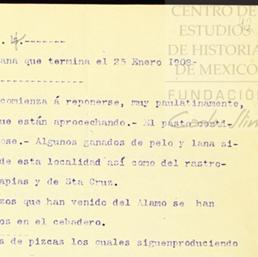 CENTRO DE
ESTUDIOS
DE HISTORIA
DE MÉXICO
FUNDACIÓN
. 4.-------
ana que termina el 25 Enero 1908-
comienza á reponerse, muy paulatinamente,
ue están aprocechando.- El pasto costi-
ose.- Algunos ganados de pelo y lana si-
de esta localidad así como del rastro-
apias y de Sta Cruz.
zos que han venido del Alamo se han
os en el cebadero.
s de pizcas los cuales siguenproduciendo